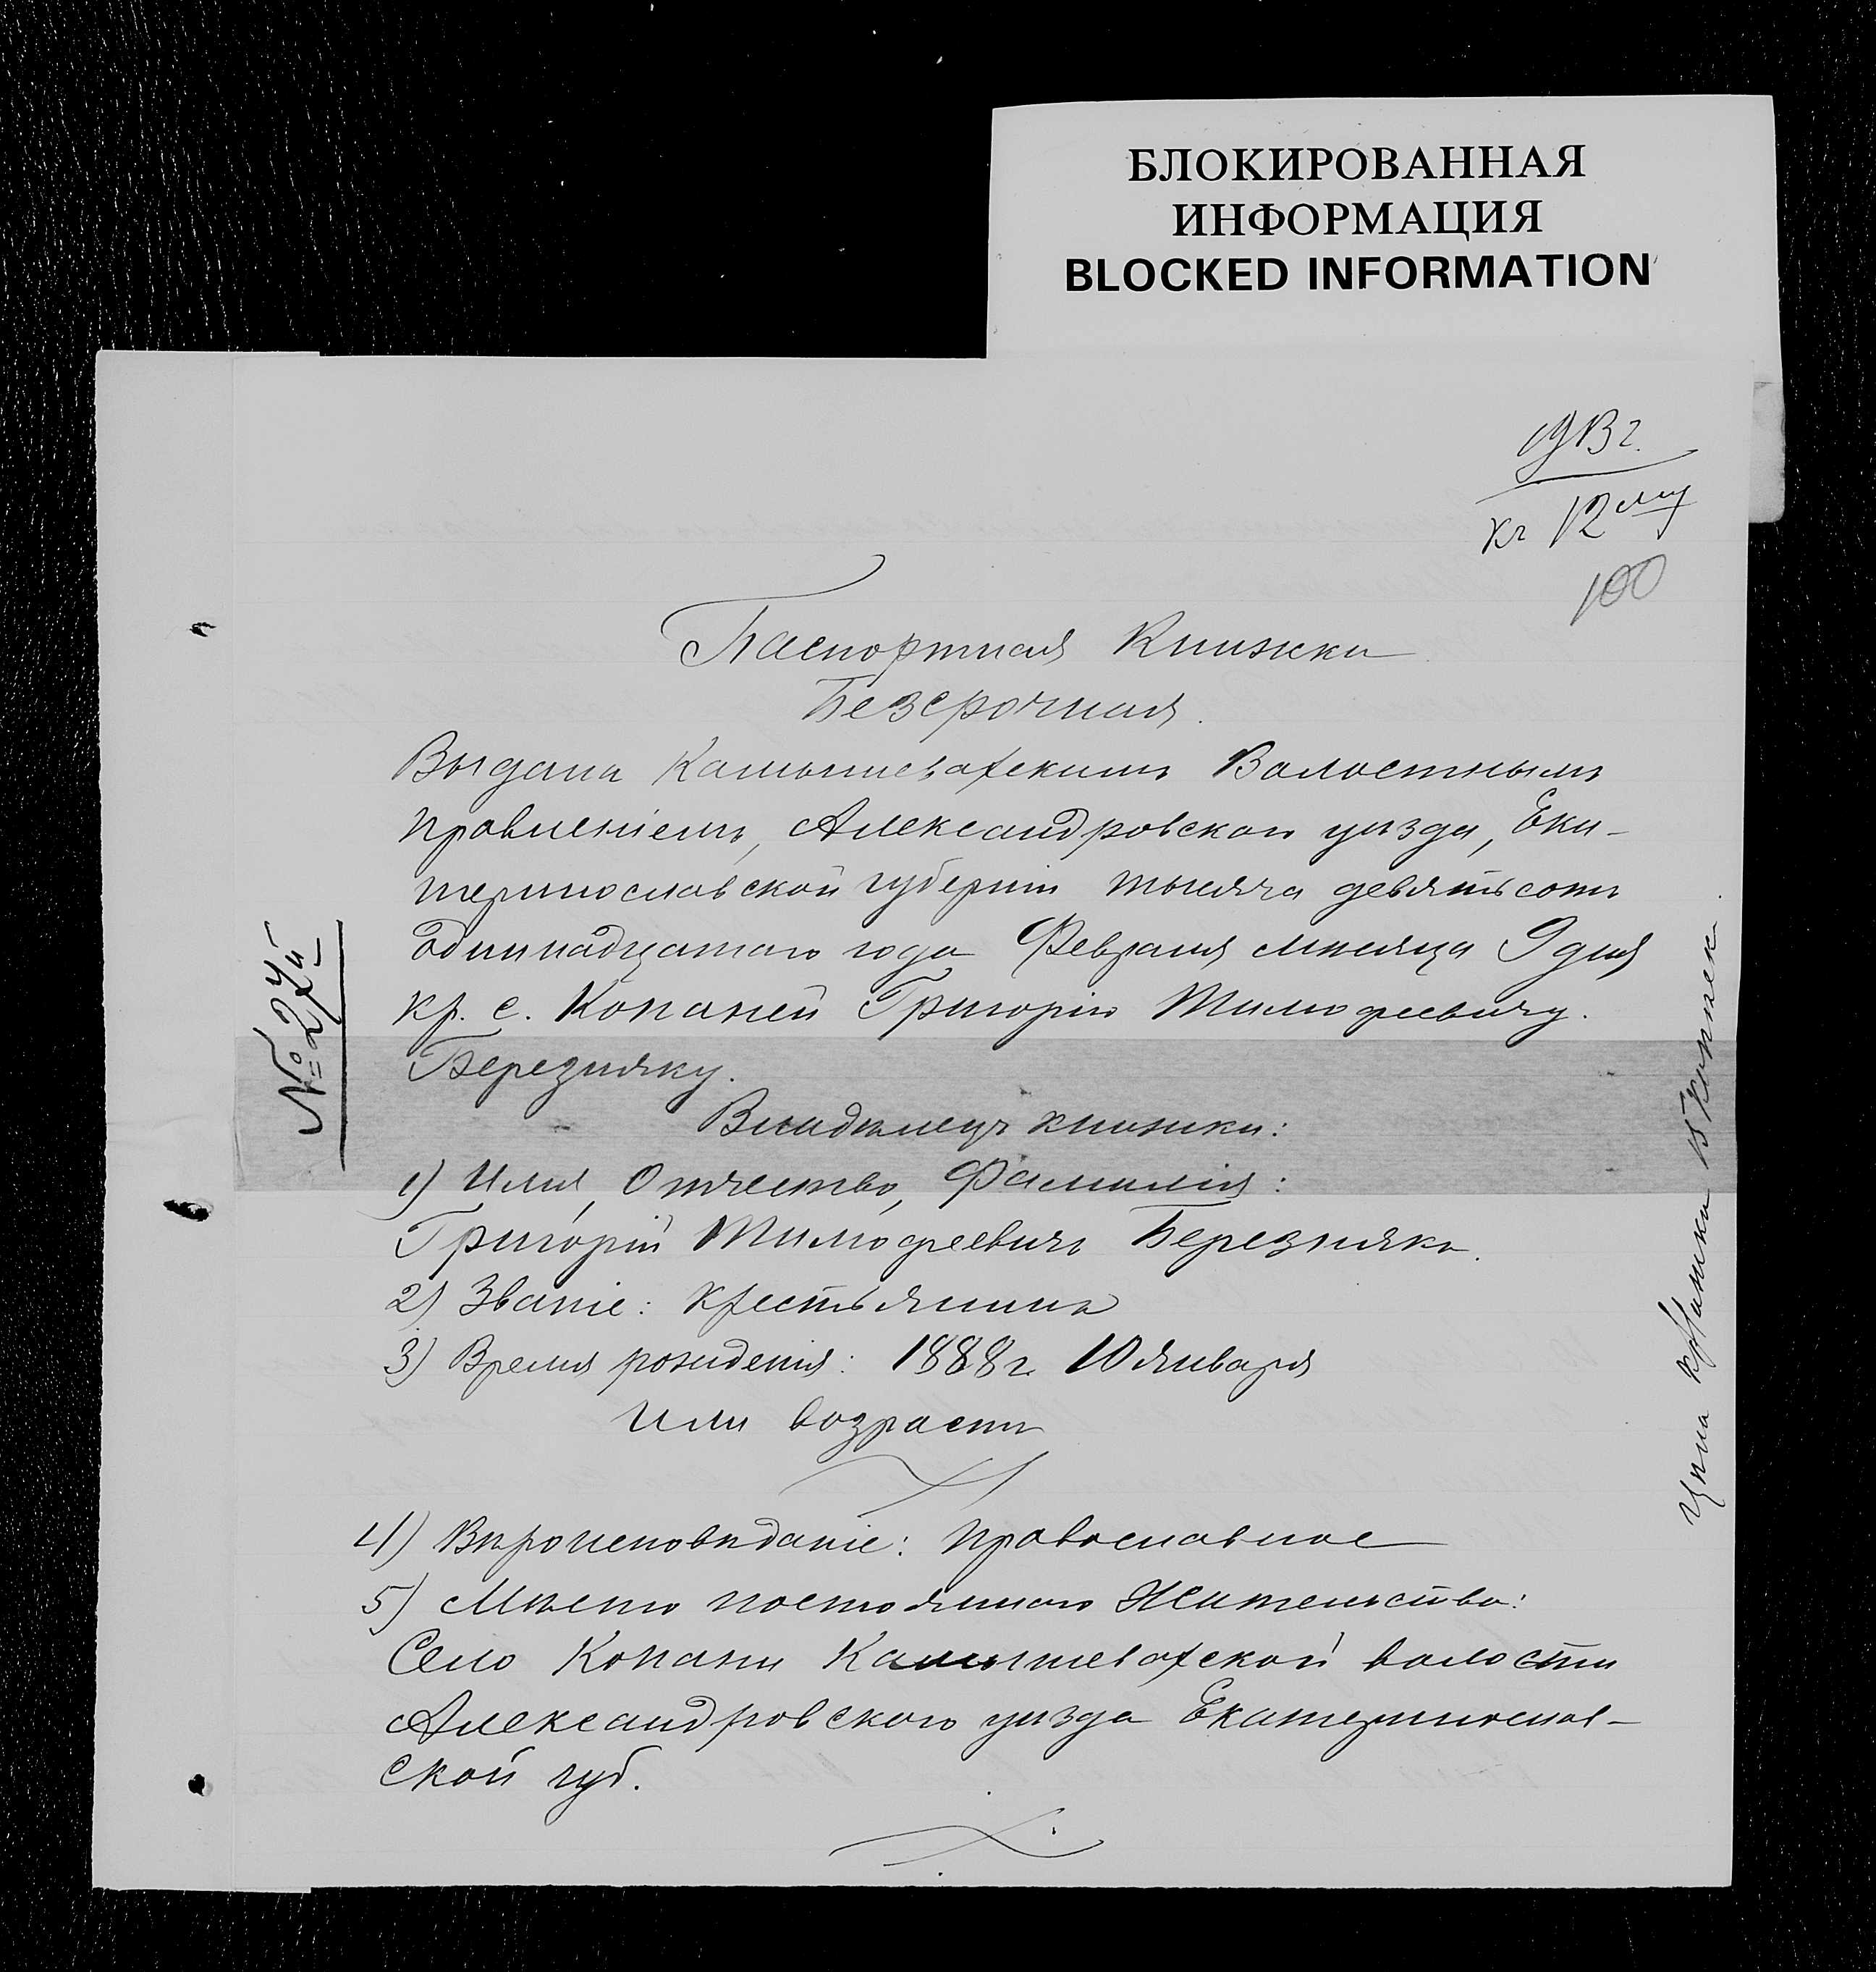 БЛОКИРОВАННАЯ
ИНФОРМАЦИЯ
BLOCKED INFORMATION
12
100
Паспортная Книжка
Безсрочная.
Выдана Камышеватскимъ Волостнымъ
Правленіемъ, Александровскаго уѣзда, Ека-
теринославской губерніи тысяча девятьсотъ
одиннадцатаго года Февраля мѣсяца 9 дня
кр. с. Копаней Григорію Тимофеевичу
Березняку.
Владѣлецъ книжки:
1) Имя, Отчество, Фамилія:
Григорій Тимофеевичъ Березнякъ.
2) Званіе: крестьянинъ
3) Время рожденія: 1888 г. 10 января
Или возрастъ
4) Вѣроисповѣданіе: Православное
5) Мѣсто постояннаго Жительства:
Село Копани Камышеватской волости
Александровскаго уѣзда Екатеринослав-
ской губ.
№ 24й
Цѣна книжки 15 копѣек.